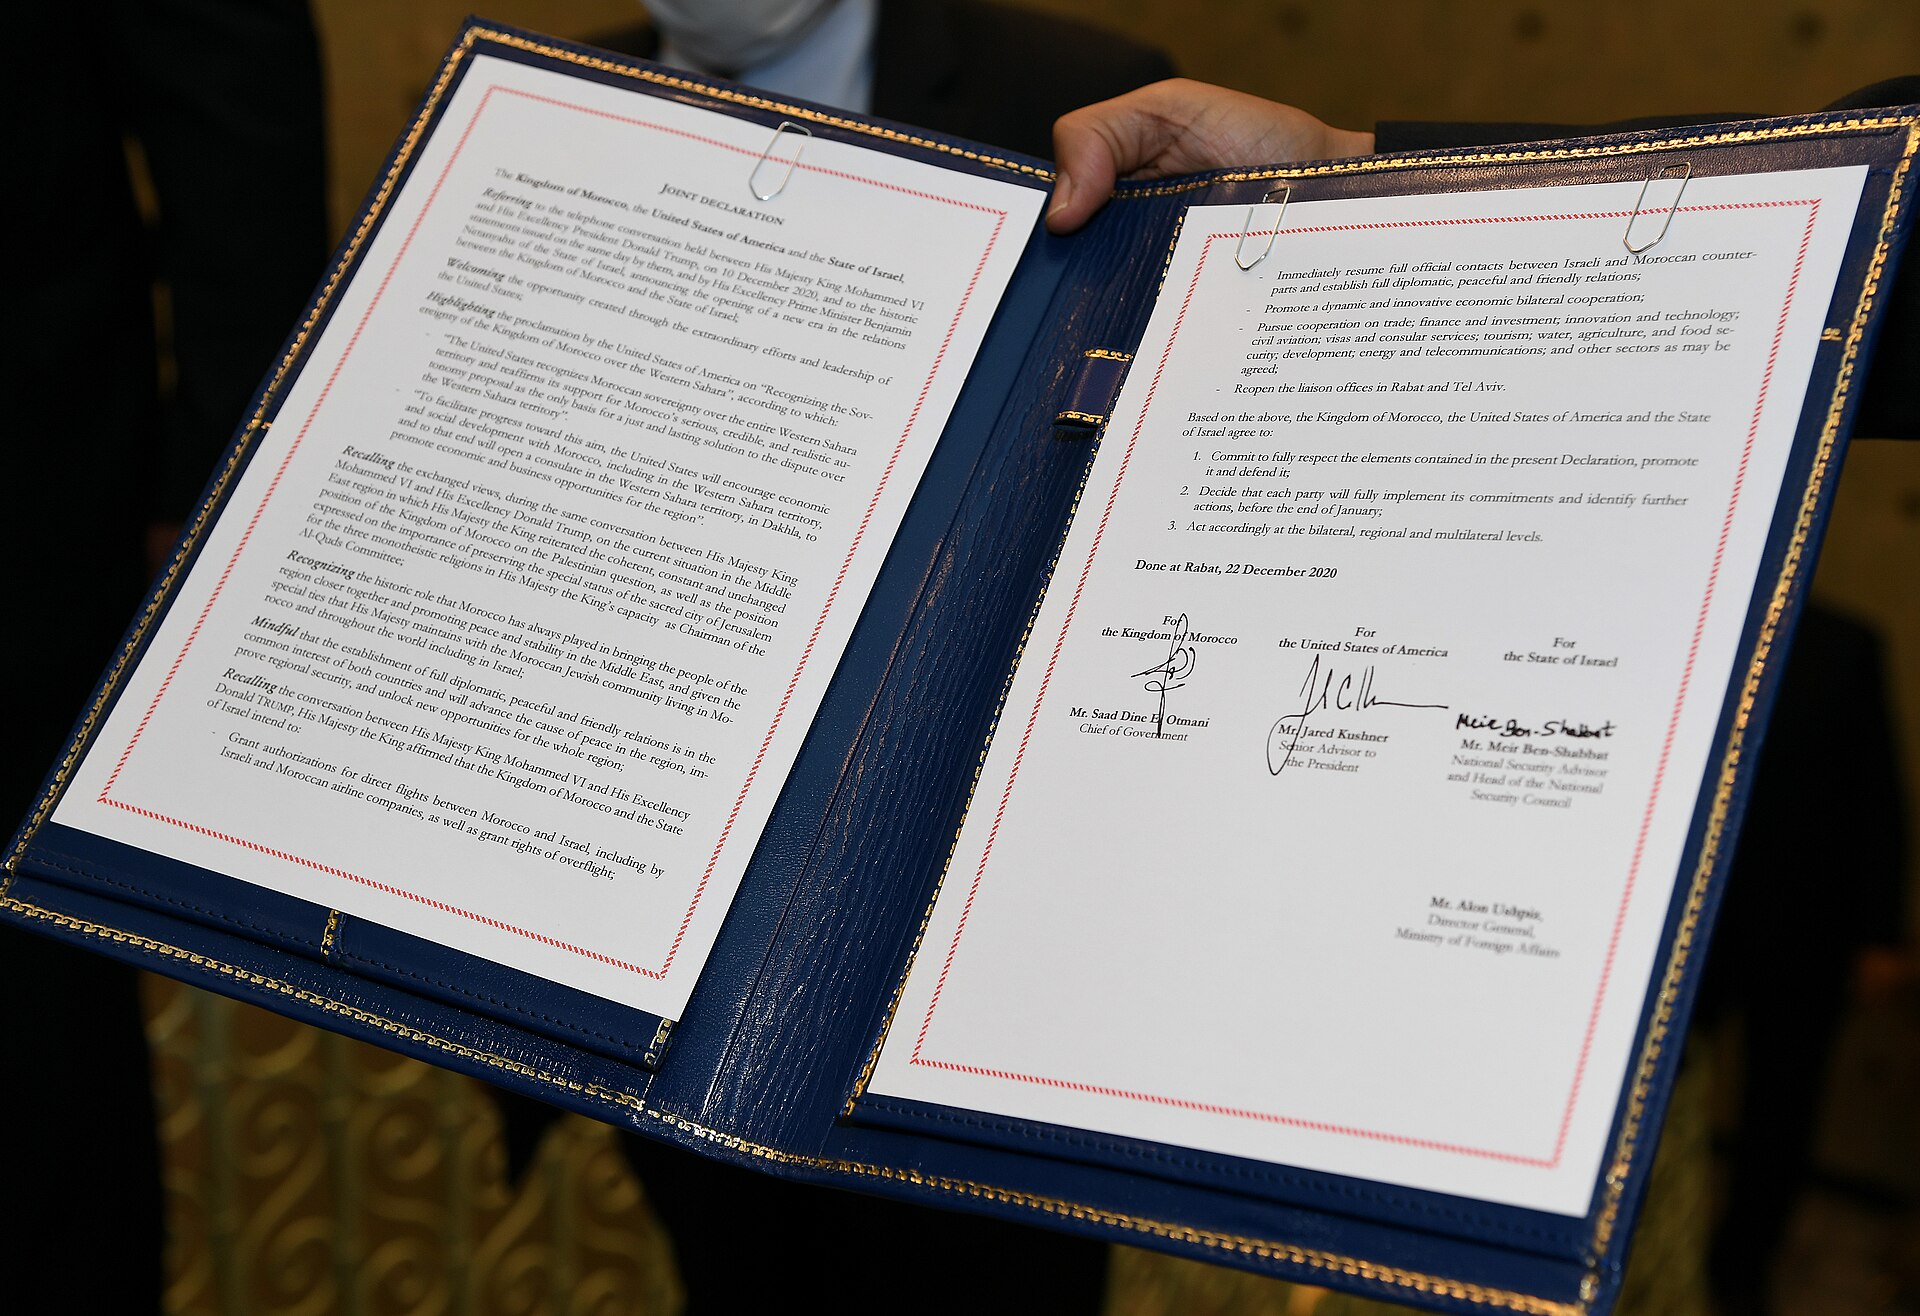 JOINT DECLARATION
The Kingdom of Morocco, the United States of America and the State of Israel,
Referring to the telephone conversation held between His Majesty King Mohammed VI
and His Excellency President Donald Trump, on 10 December 2020, and to the historic
statements issued on the same day by them, and by His Excellency Prime Minister Benjamin
Netanyahu of the State of Israel, announcing the opening of a new era in the relations
between the Kingdom of Morocco and the State of Israel;
Welcoming the opportunity created through the extraordinary efforts and leadership of
the United States;
Highlighting the proclamation by the United States of America on “Recognizing the Sov-
ereignty of the Kingdom of Morocco over the Western Sahara”, according to which:
- “The United States recognizes Moroccan sovereignty over the entire Western Sahara
territory and reaffirms its support for Morocco's serious, credible, and realistic au-
tonomy proposal as the only basis for a just and lasting solution to the dispute over
the Western Sahara territory”.
- “To facilitate progress toward this aim, the United States will encourage economic
and social development with Morocco, including in the Western Sahara territory,
and to that end will open a consulate in the Western Sahara territory, in Dakhla, to
promote economic and business opportunities for the region”.
Recalling the exchanged views, during the same conversation between His Majesty King
Mohammed VI and His Excellency Donald Trump, on the current situation in the Middle
East region in which His Majesty the King reiterated the coherent, constant and unchanged
position of the Kingdom of Morocco on the Palestinian question, as well as the position
expressed on the importance of preserving the special status of the sacred city of Jerusalem
for the three monotheistic religions in His Majesty the King's capacity as Chairman of the
Al-Quds Committee;
Recognizing the historic role that Morocco has always played in bringing the people of the
region closer together and promoting peace and stability in the Middle East, and given the
special ties that His Majesty maintains with the Moroccan Jewish community living in Mo-
rocco and throughout the world including in Israel;
Mindful that the establishment of full diplomatic, peaceful and friendly relations is in the
common interest of both countries and will advance the cause of peace in the region, im-
prove regional security, and unlock new opportunities for the whole region;
Recalling the conversation between His Majesty King Mohammed VI and His Excellency
Donald TRUMP, His Majesty the King affirmed that the Kingdom of Morocco and the State
of Israel intend to:
- Grant authorizations for direct flights between Morocco and Israel, including by
Israeli and Moroccan airline companies, as well as grant rights of overflight;
- Immediately resume full official contacts between Israeli and Moroccan counter-
parts and establish full diplomatic, peaceful and friendly relations;
- Promote a dynamic and innovative economic bilateral cooperation;
- Pursue cooperation on trade; finance and investment; innovation and technology;
civil aviation; visas and consular services; tourism; water, agriculture, and food se-
curity; development; energy and telecommunications; and other sectors as may be
agreed;
- Reopen the liaison offices in Rabat and Tel Aviv.
Based on the above, the Kingdom of Morocco, the United States of America and the State
of Israel agree to:
1. Commit to fully respect the elements contained in the present Declaration, promote
it and defend it;
2. Decide that each party will fully implement its commitments and identify further
actions, before the end of January;
3. Act accordingly at the bilateral, regional and multilateral levels.
Done at Rabat, 22 December 2020
For
the Kingdom of Morocco
Mr. Saad Dine El Otmani
Chief of Government
For
the United States of America
Mr. Jared Kushner
Senior Advisor to
the President
For
the State of Israel
Meir Ben-Shabbat
Mr. Meir Ben-Shabbat
National Security Advisor
and Head of the National
Security Council
Mr. Alon Ushpiz,
Director General,
Ministry of Foreign Affairs